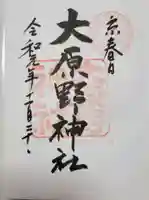 京春日
大原野神社
令和元年十一月三十日